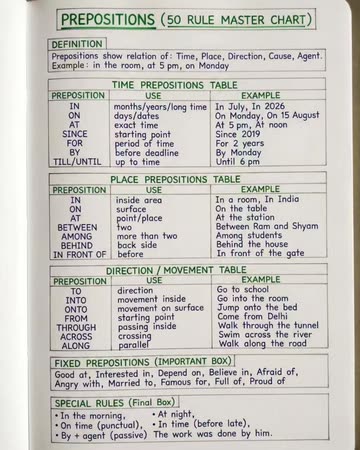 PREPOSITIONS (50 RULE MASTER CHART)
DEFINITION
Prepositions show relation of: Time, Place, Direction, Cause, Agent.
Example: in the room, at 5 pm, on Monday
TIME PREPOSITIONS TABLE
PREPOSITION USE EXAMPLE
IN months/years/long time In July, In 2026
ON days/dates On Monday, On 15 August
AT exact time At 5 pm, At noon
SINCE starting point Since 2019
FOR period of time For 2 years
BY before deadline By Monday
TILL/UNTIL up to time Until 6 pm
PLACE PREPOSITIONS TABLE
PREPOSITION USE EXAMPLE
IN inside area In a room, In India
ON surface On the table
AT point/place At the station
BETWEEN two Between Ram and Shyam
AMONG more than two Among students
BEHIND back side Behind the house
IN FRONT OF before In front of the gate
DIRECTION / MOVEMENT TABLE
PREPOSITION USE EXAMPLE
TO direction Go to school
INTO movement inside Go into the room
ONTO movement on surface Jump onto the bed
FROM starting point Come from Delhi
THROUGH passing inside Walk through the tunnel
ACROSS crossing Swim across the river
ALONG parallel Walk along the road
FIXED PREPOSITIONS (IMPORTANT BOX)
Good at, Interested in, Depend on, Believe in, Afraid of,
Angry with, Married to, Famous for, Full of, Proud of
SPECIAL RULES (Final Box)
• In the morning, • At night,
• On time (punctual), • In time (before late),
• By + agent (passive) The work was done by him.